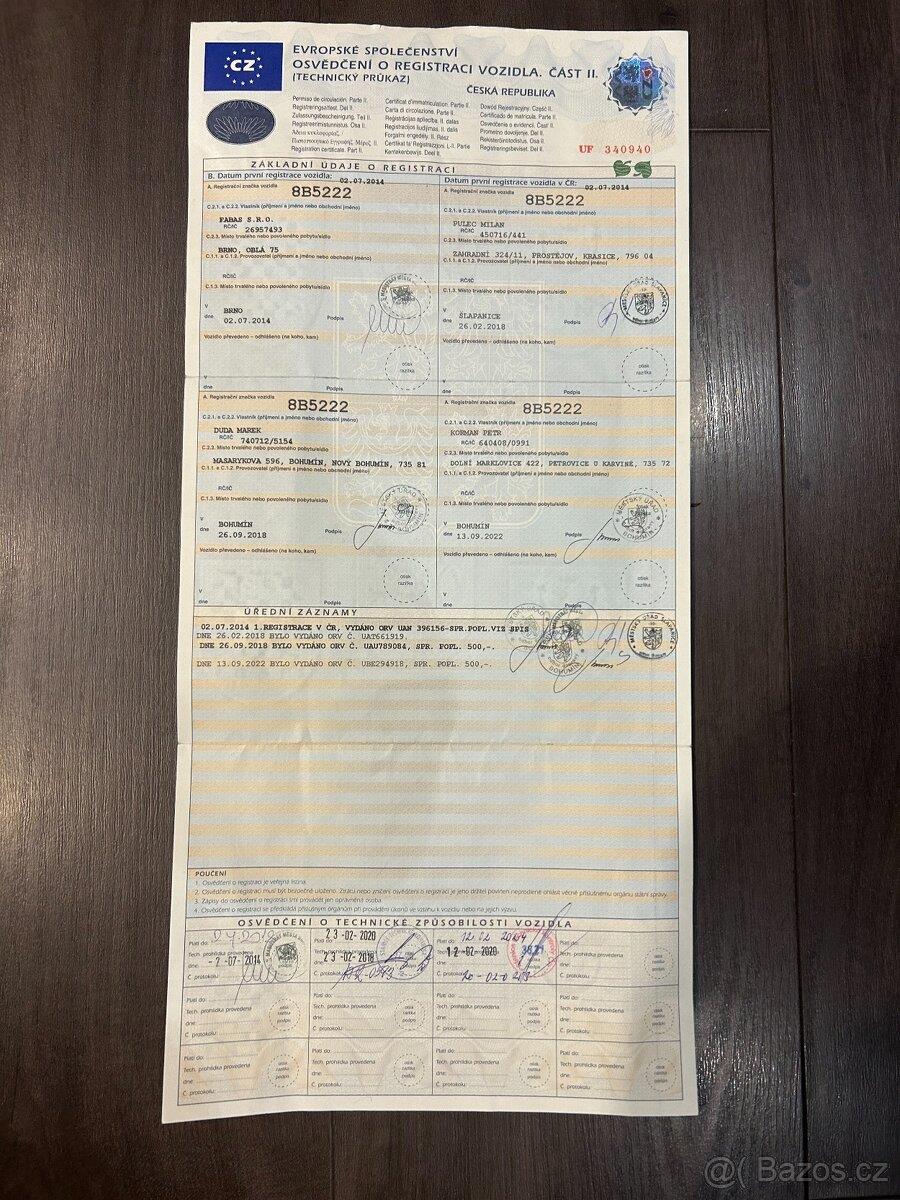 CZ
EVROPSKÉ SPOLEČENSTVÍ
OSVĚDČENÍ O REGISTRACI VOZIDLA. ČÁST II.
(TECHNICKÝ PRŮKAZ)
ČESKÁ REPUBLIKA
Permiso de circulación. Parte II.
Registreringsattest. Del II.
Zulassungsbescheinigung. Teil II.
Registreerimistunnistus. Osa II.
Άδεια κυκλοφορίας. /
Πιστοποιητικό Εγγραφής. Μέρος II.
Registration certificate. Part II.
Certificat d'immatriculation. Partie II.
Carta di circolazione. Parte II.
Reģistrācijas apliecība. II. daļa
Registracijos liudijimas. II dalis
Forgalmi engedély. II. Rész
Ċertifikat ta' Reġistrazzjoni. L-II. Parte
Kentekenbewijs. Deel II.
Dowód Rejestracyjny. Część II.
Certificado de matrícula. Parte II.
Osvedčenie o evidencii. Časť II.
Prometno dovoljenje. Del II.
Rekisteröintitodistus. Osa II.
Registreringsbeviset. Del II.
UF 340940
ZÁKLADNÍ ÚDAJE O REGISTRACI
B. Datum první registrace vozidla: 02.07.2014
Datum první registrace vozidla v ČR: 02.07.2014
A. Registrační značka vozidla
8B5222
C.2.1. a C.2.2. Vlastník (příjmení a jméno nebo obchodní jméno)
FABAS S.R.O.
RČ/IČ 26957493
C.2.3. Místo trvalého nebo povoleného pobytu/sídlo
BRNO, OBLÁ 75
C.1.1. a C.1.2. Provozovatel (příjmení a jméno nebo obchodní jméno)
RČ/IČ
C.1.3. Místo trvalého nebo povoleného pobytu/sídlo
V BRNO
dne 02.07.2014 Podpis
Vozidlo převedeno – odhlášeno (na koho, kam)
otisk
razítka
V
dne Podpis
A. Registrační značka vozidla
8B5222
C.2.1. a C.2.2. Vlastník (příjmení a jméno nebo obchodní jméno)
PULEC MILAN
RČ/IČ 450716/441
C.2.3. Místo trvalého nebo povoleného pobytu/sídlo
ZAHRADNÍ 324/11, PROSTĚJOV, KRASICE, 796 04
C.1.1. a C.1.2. Provozovatel (příjmení a jméno nebo obchodní jméno)
RČ/IČ
C.1.3. Místo trvalého nebo povoleného pobytu/sídlo
MĚSTSKÝ ÚŘAD ŠLAPANICE
V ŠLAPANICE
dne 26.02.2018 Podpis
Vozidlo převedeno – odhlášeno (na koho, kam)
otisk
razítka
V
dne Podpis
A. Registrační značka vozidla
8B5222
C.2.1. a C.2.2. Vlastník (příjmení a jméno nebo obchodní jméno)
DUDA MAREK
RČ/IČ 740712/5154
C.2.3. Místo trvalého nebo povoleného pobytu/sídlo
MASARYKOVA 596, BOHUMÍN, NOVÝ BOHUMÍN, 735 81
C.1.1. a C.1.2. Provozovatel (příjmení a jméno nebo obchodní jméno)
RČ/IČ
C.1.3. Místo trvalého nebo povoleného pobytu/sídlo
V BOHUMÍN
dne 26.09.2018 Podpis
Vozidlo převedeno – odhlášeno (na koho, kam)
otisk
razítka
V
dne Podpis
A. Registrační značka vozidla
8B5222
C.2.1. a C.2.2. Vlastník (příjmení a jméno nebo obchodní jméno)
KORMAN PETR
RČ/IČ 640408/0991
C.2.3. Místo trvalého nebo povoleného pobytu/sídlo
DOLNÍ MARKLOVICE 422, PETROVICE U KARVINÉ, 735 72
C.1.1. a C.1.2. Provozovatel (příjmení a jméno nebo obchodní jméno)
RČ/IČ
C.1.3. Místo trvalého nebo povoleného pobytu/sídlo
MĚSTSKÝ ÚŘAD BOHUMÍN
V BOHUMÍN
dne 13.09.2022 Podpis
Vozidlo převedeno – odhlášeno (na koho, kam)
otisk
razítka
V
dne Podpis
ÚŘEDNÍ ZÁZNAMY
02.07.2014 1.REGISTRACE V ČR, VYDÁNO ORV UAN 396156-SPR.POPL.VIZ SPIS
DNE 26.02.2018 BYLO VYDÁNO ORV Č. UAT661919.
DNE 26.09.2018 BYLO VYDÁNO ORV Č. UAU789084, SPR. POPL. 500,-.
DNE 13.09.2022 BYLO VYDÁNO ORV Č. UBE294918, SPR. POPL. 500,-.
MĚSTSKÝ ÚŘAD ŠLAPANICE
BOHUMÍN
POUČENÍ
1. Osvědčení o registraci je veřejná listina.
2. Osvědčení o registraci musí být bezpečně uloženo. Ztrátu nebo zničení osvědčení o registraci je jeho držitel povinen neprodleně ohlásit věcně příslušnému orgánu státní správy.
3. Zápisy do osvědčení o registraci smí provádět jen oprávněná osoba.
4. Osvědčení o registraci se předkládá příslušným orgánům při provádění úkonů ve vztahu k vozidlu nebo na jejich výzvu.
OSVĚDČENÍ O TECHNICKÉ ZPŮSOBILOSTI VOZIDLA
Platí do:
Tech. prohlídka provedena
dne: - 2 -07- 2014
Č. protokolu:
Platí do: 23 -02- 2020
Tech. prohlídka provedena
dne: 23 -02- 2018
Č. protokolu:
Platí do: 12 02 2024
Tech. prohlídka provedena
dne: 12 -02- 2020
Č. protokolu:
38.21
Platí do:
Tech. prohlídka provedena
dne:
Č. protokolu:
otisk
razítka
podpis
Platí do:
Tech. prohlídka provedena
dne:
Č. protokolu:
otisk
razítka
podpis
Platí do:
Tech. prohlídka provedena
dne:
Č. protokolu:
otisk
razítka
podpis
Platí do:
Tech. prohlídka provedena
dne:
Č. protokolu:
otisk
razítka
podpis
Platí do:
Tech. prohlídka provedena
dne:
Č. protokolu:
otisk
razítka
podpis
Platí do:
Tech. prohlídka provedena
dne:
Č. protokolu:
otisk
razítka
podpis
Platí do:
Tech. prohlídka provedena
dne:
Č. protokolu:
otisk
razítka
podpis
Platí do:
Tech. prohlídka provedena
dne:
Č. protokolu:
otisk
razítka
podpis
Platí do:
Tech. prohlídka provedena
dne:
Č. protokolu:
otisk
razítka
podpis
@( Bazos.cz